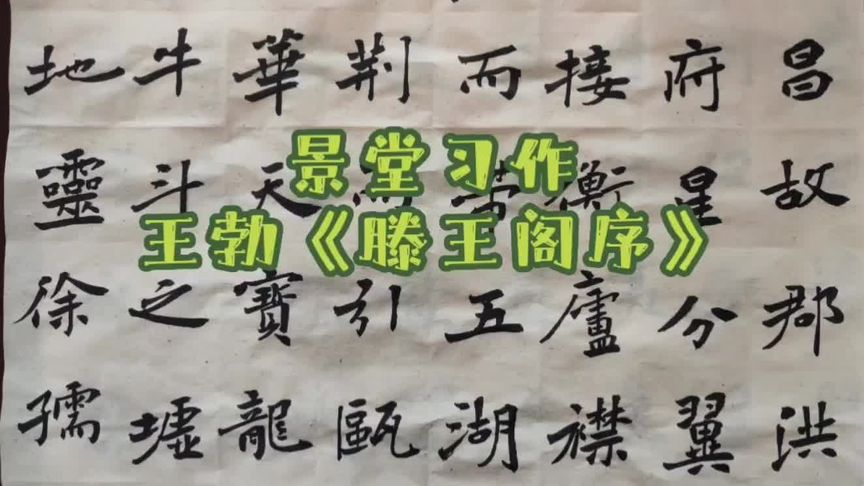 景堂习作
王勃《滕王阁序》
昌故郡洪
府星分翼
接衡廬襟
而帶五湖
荆而引甌
華天寶龍
牛斗之墟
地靈徐孺